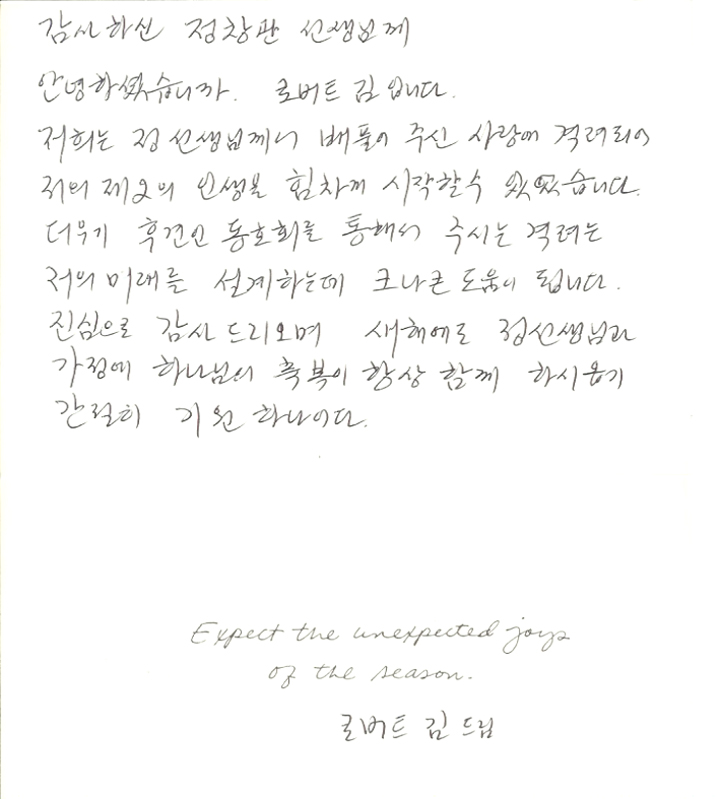 감사하신 정창관 선생님께
안녕하셨습니까. 로버트 김 입니다.
저희는 정 선생님께서 베풀어 주신 사랑에 격려되어
저의 제2의 인생을 힘차게 시작할수 있었습니다.
더우기 후견인 동호회를 통해서 주시는 격려는
저의 미래를 설계하는데 크나큰 도움이 됩니다.
진심으로 감사 드리오며 새해에도 정선생님과
가정에 하나님의 축복이 항상 함께 하시옵기
간절히 기원 하나이다.
Expect the unexpected joys
of the season.
로버트 김 드림